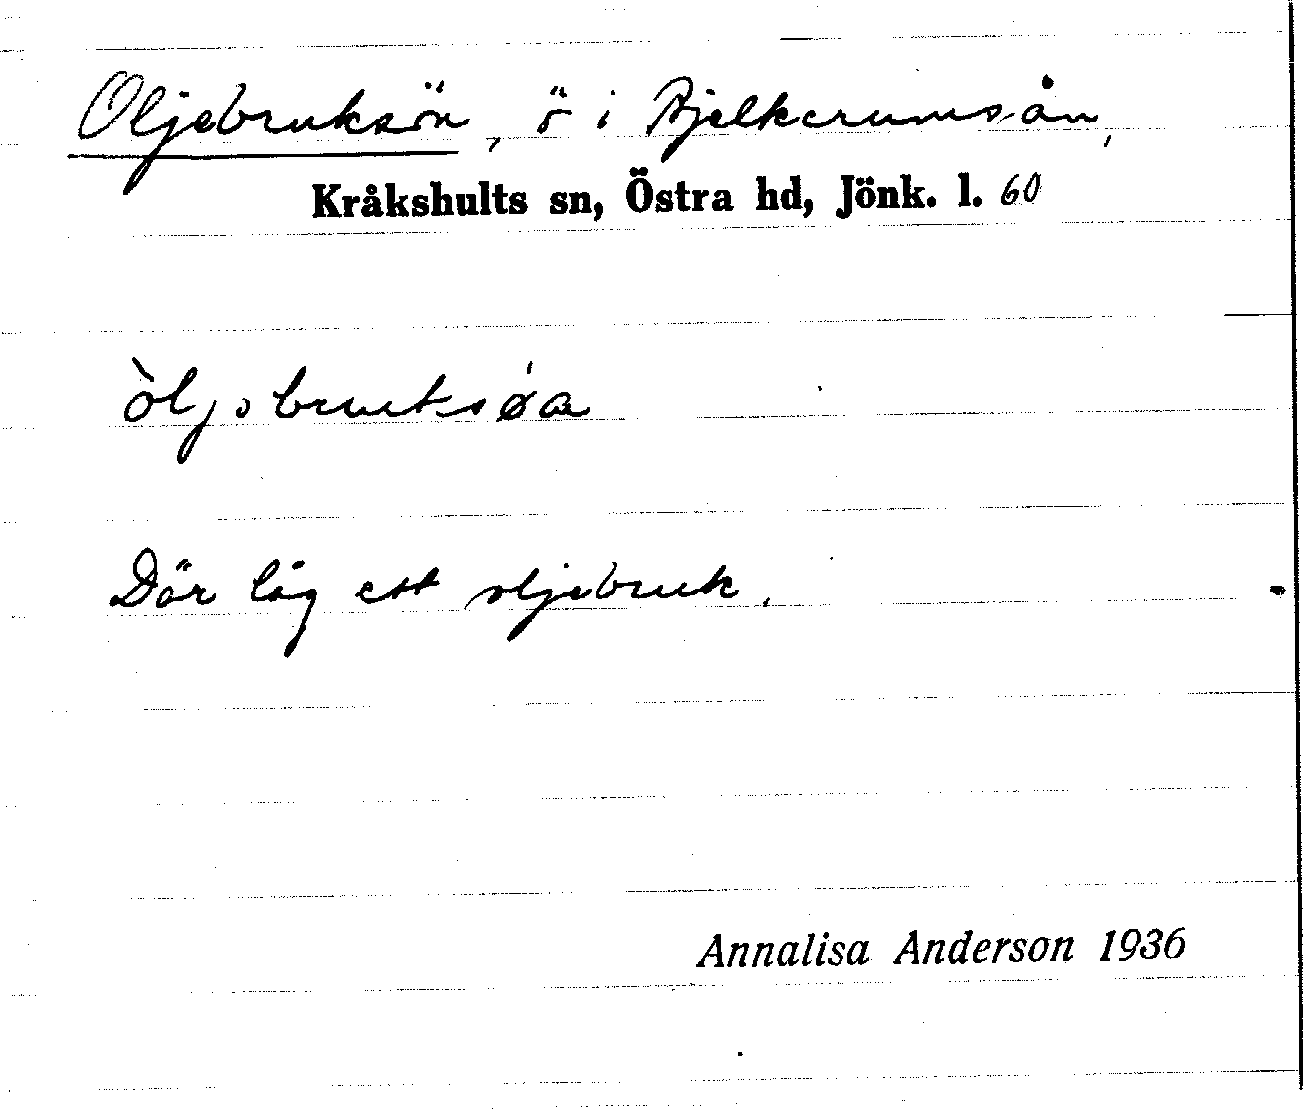 Oljebruksön, ö i Bjelkerumsån,
Kråkshults sn, Östra hd, Jönk. l. 60
òljəbruksǿa
Där låg ett oljebruk.
Annalisa Anderson 1936